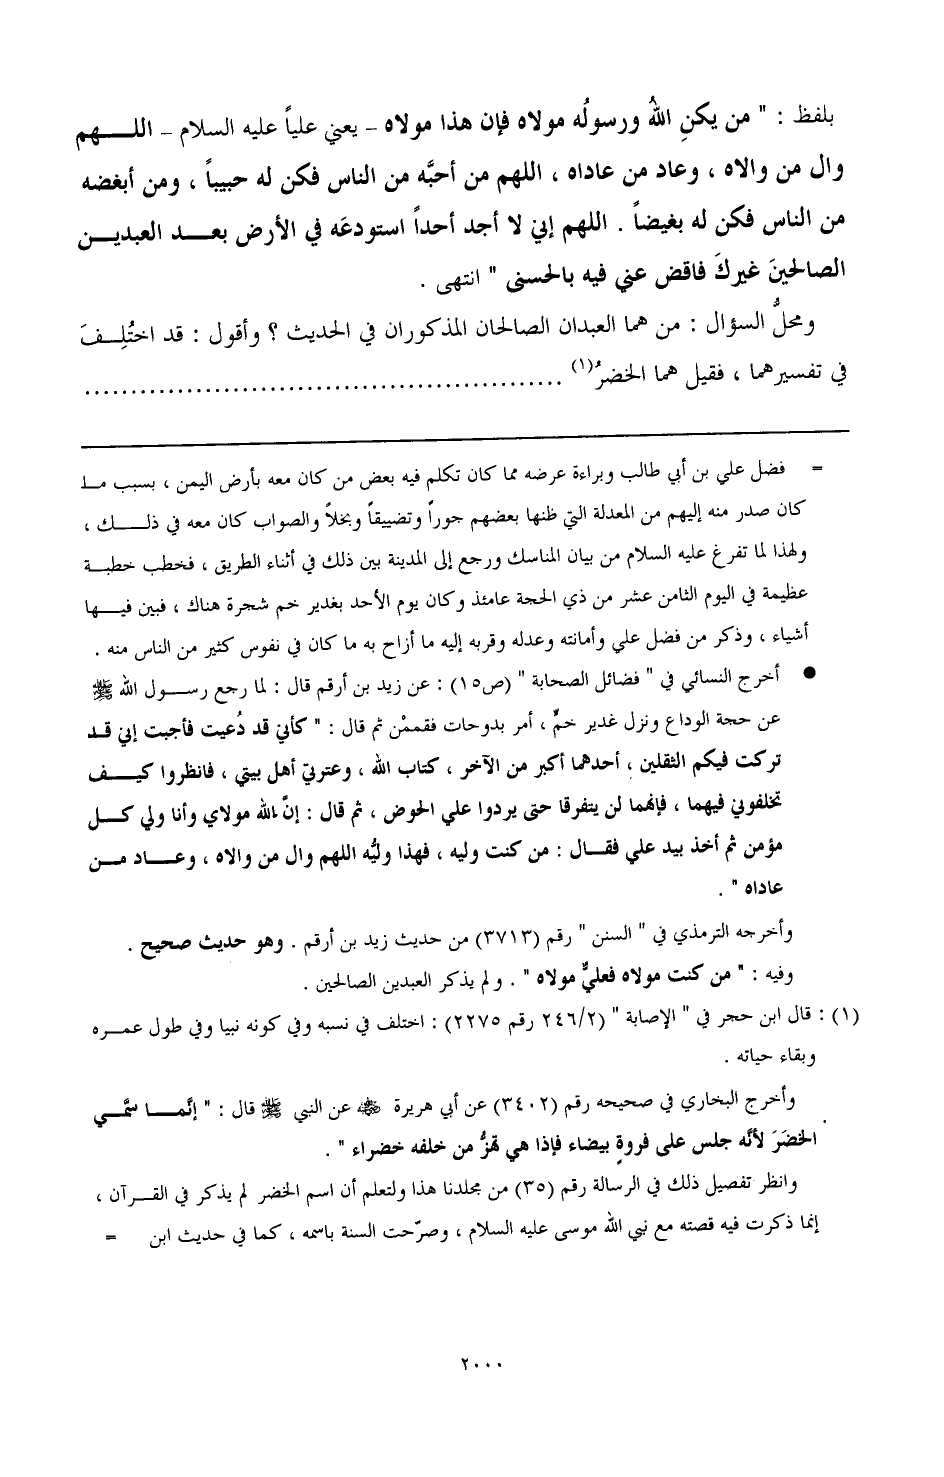 بلفظ : " من يكنِ اللهُ ورسولُه مولاه فإن هذا مولاه – يعني علياً عليه السلام – اللــــهم
وال من والاه ، وعاد من عاداه ، اللهم من أحبَّه من الناس فكن له حبيباً ، ومن أبغضه
من الناس فكن له بغيضاً . اللهم إني لا أجد أحداً استودعَه في الأرض بعـــد العبديـــن
الصالحينَ غيركَ فاقض عني فيه بالحسنى " انتهى .
ومحلُّ السؤال : من هما العبدان الصالحان المذكوران في الحديث ؟ وأقول : قد اختُلِـــفَ
في تفسيرهما ، فقيل هما الخضرُ(١) ....................................................
= فضل علي بن أبي طالب وبراءة عرضه مما كان تكلم فيه بعض من كان معه بأرض اليمن ، بسبب مـــا
كان صدر منه إليهم من المعدلة التي ظنها بعضهم جوراً وتضييقاً وبخلاً والصواب كان معه في ذلــــك ،
ولهذا لما تفرغ عليه السلام من بيان المناسك ورجع إلى المدينة بين ذلك في أثناء الطريق ، فخطب خطبـــة
عظيمة في اليوم الثامن عشر من ذي الحجة عامئذ وكان يوم الأحد بغدير خم شجرة هناك ، فبين فيـــها
أشياء ، وذكر من فضل علي وأمانته وعدله وقربه إليه ما أزاح به ما كان في نفوس كثير من الناس منه .
● أخرج النسائي في " فضائل الصحابة " (ص١٥) : عن زيد بن أرقم قال : لما رجع رســـول الله ﷺ
عن حجة الوداع ونزل غدير خمٍّ ، أمر بدوحات فقممْن ثم قال : " كأني قد دُعيت فأجبت إني قـــد
تركت فيكم الثقلين ، أحدهما أكبر من الآخر ، كتاب الله ، وعترتي أهل بيتي ، فانظروا كيـــف
تخلفوني فيهما ، فإنهما لن يتفرقا حتى يردوا علي الحوض ، ثم قال : إنَّ الله مولاي وأنا ولي كـــل
مؤمن ثم أخذ بيد علي فقـــال : من كنت وليه ، فهذا وليُّه اللهم وال من والاه ، وعـــاد مـــن
عاداه " .
وأخرجه الترمذي في " السنن " رقم (٣٧١٣) من حديث زيد بن أرقم . وهو حديث صحيح .
وفيه : " من كنت مولاه فعليٌّ مولاه " . ولم يذكر العبدين الصالحين .
(١) : قال ابن حجر في " الإصابة " (٢٤٦/٢ رقم ٢٢٧٥) : اختلف في نسبه وفي كونه نبيا وفي طول عمـــره
وبقاء حياته .
وأخرج البخاري في صحيحه رقم (٣٤٠٢) عن أبي هريرة ﷺ عن النبي ﷺ قال : " إنَّمـــا سمَّـــي
الخضَرَ لأنَّه جلس على فروةٍ بيضاء فإذا هي تهزُّ من خلفه خضراء " .
وانظر تفصيل ذلك في الرسالة رقم (٣٥) من مجلدنا هذا ولتعلم أن اسم الخضر لم يذكر في القـــرآن ،
إنما ذكرت فيه قصته مع نبي الله موسى عليه السلام ، وصرّحت السنة باسمه ، كما في حديث ابن =
٢٠٠٠